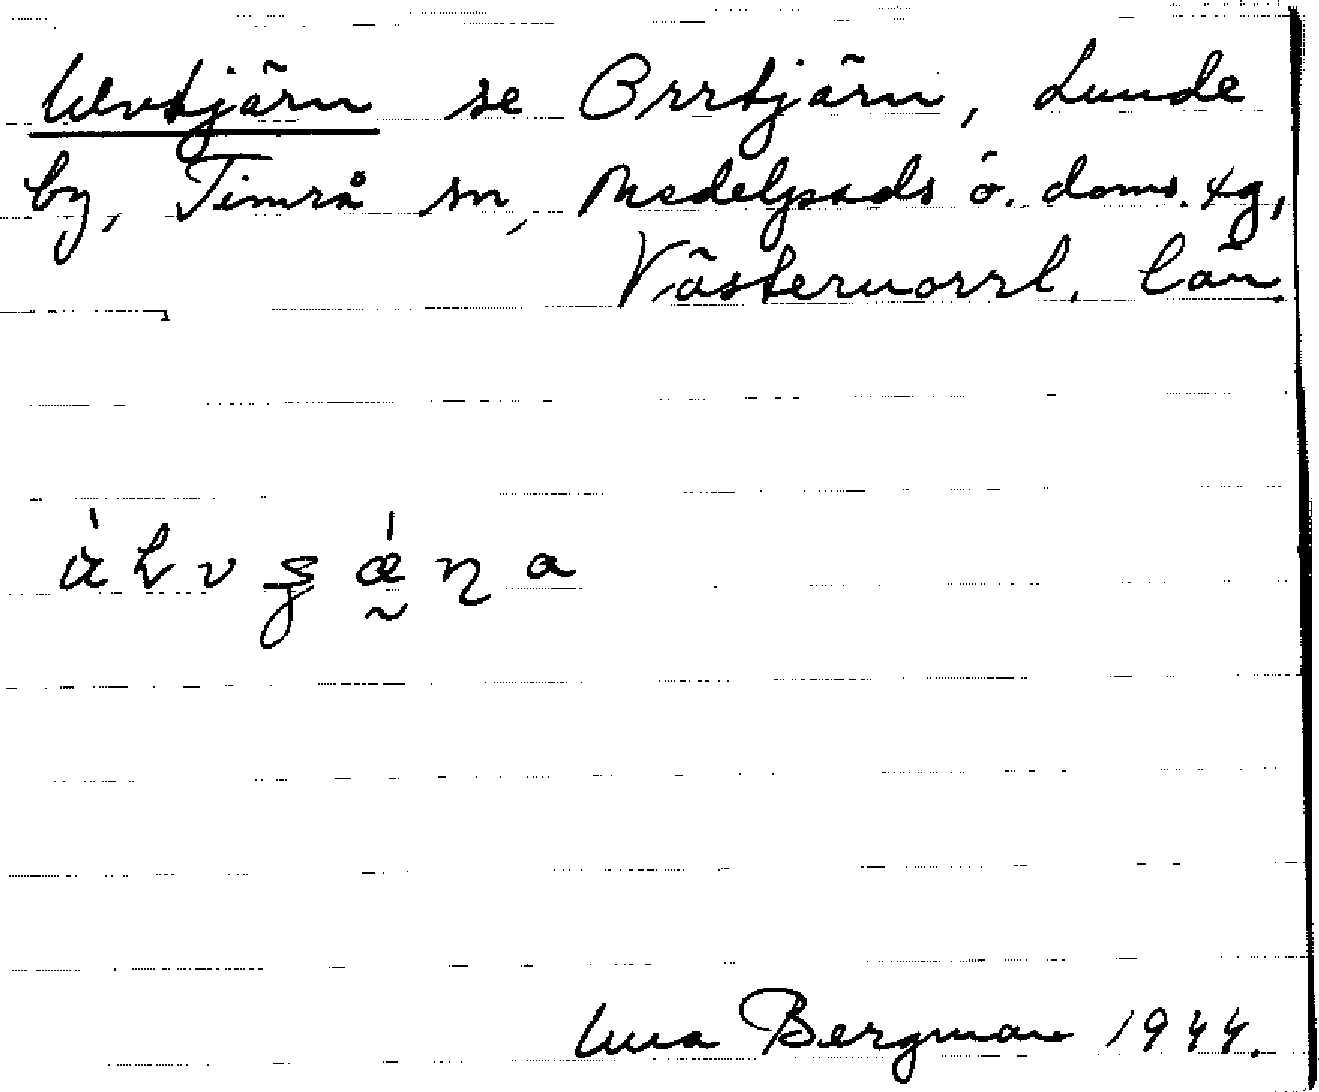 Ulvtjärn se Orrtjärn, Lunde
by, Timrå sn, Medelpads ö. doms. tg,
Västernorrl. län.
Una Bergman 1944.